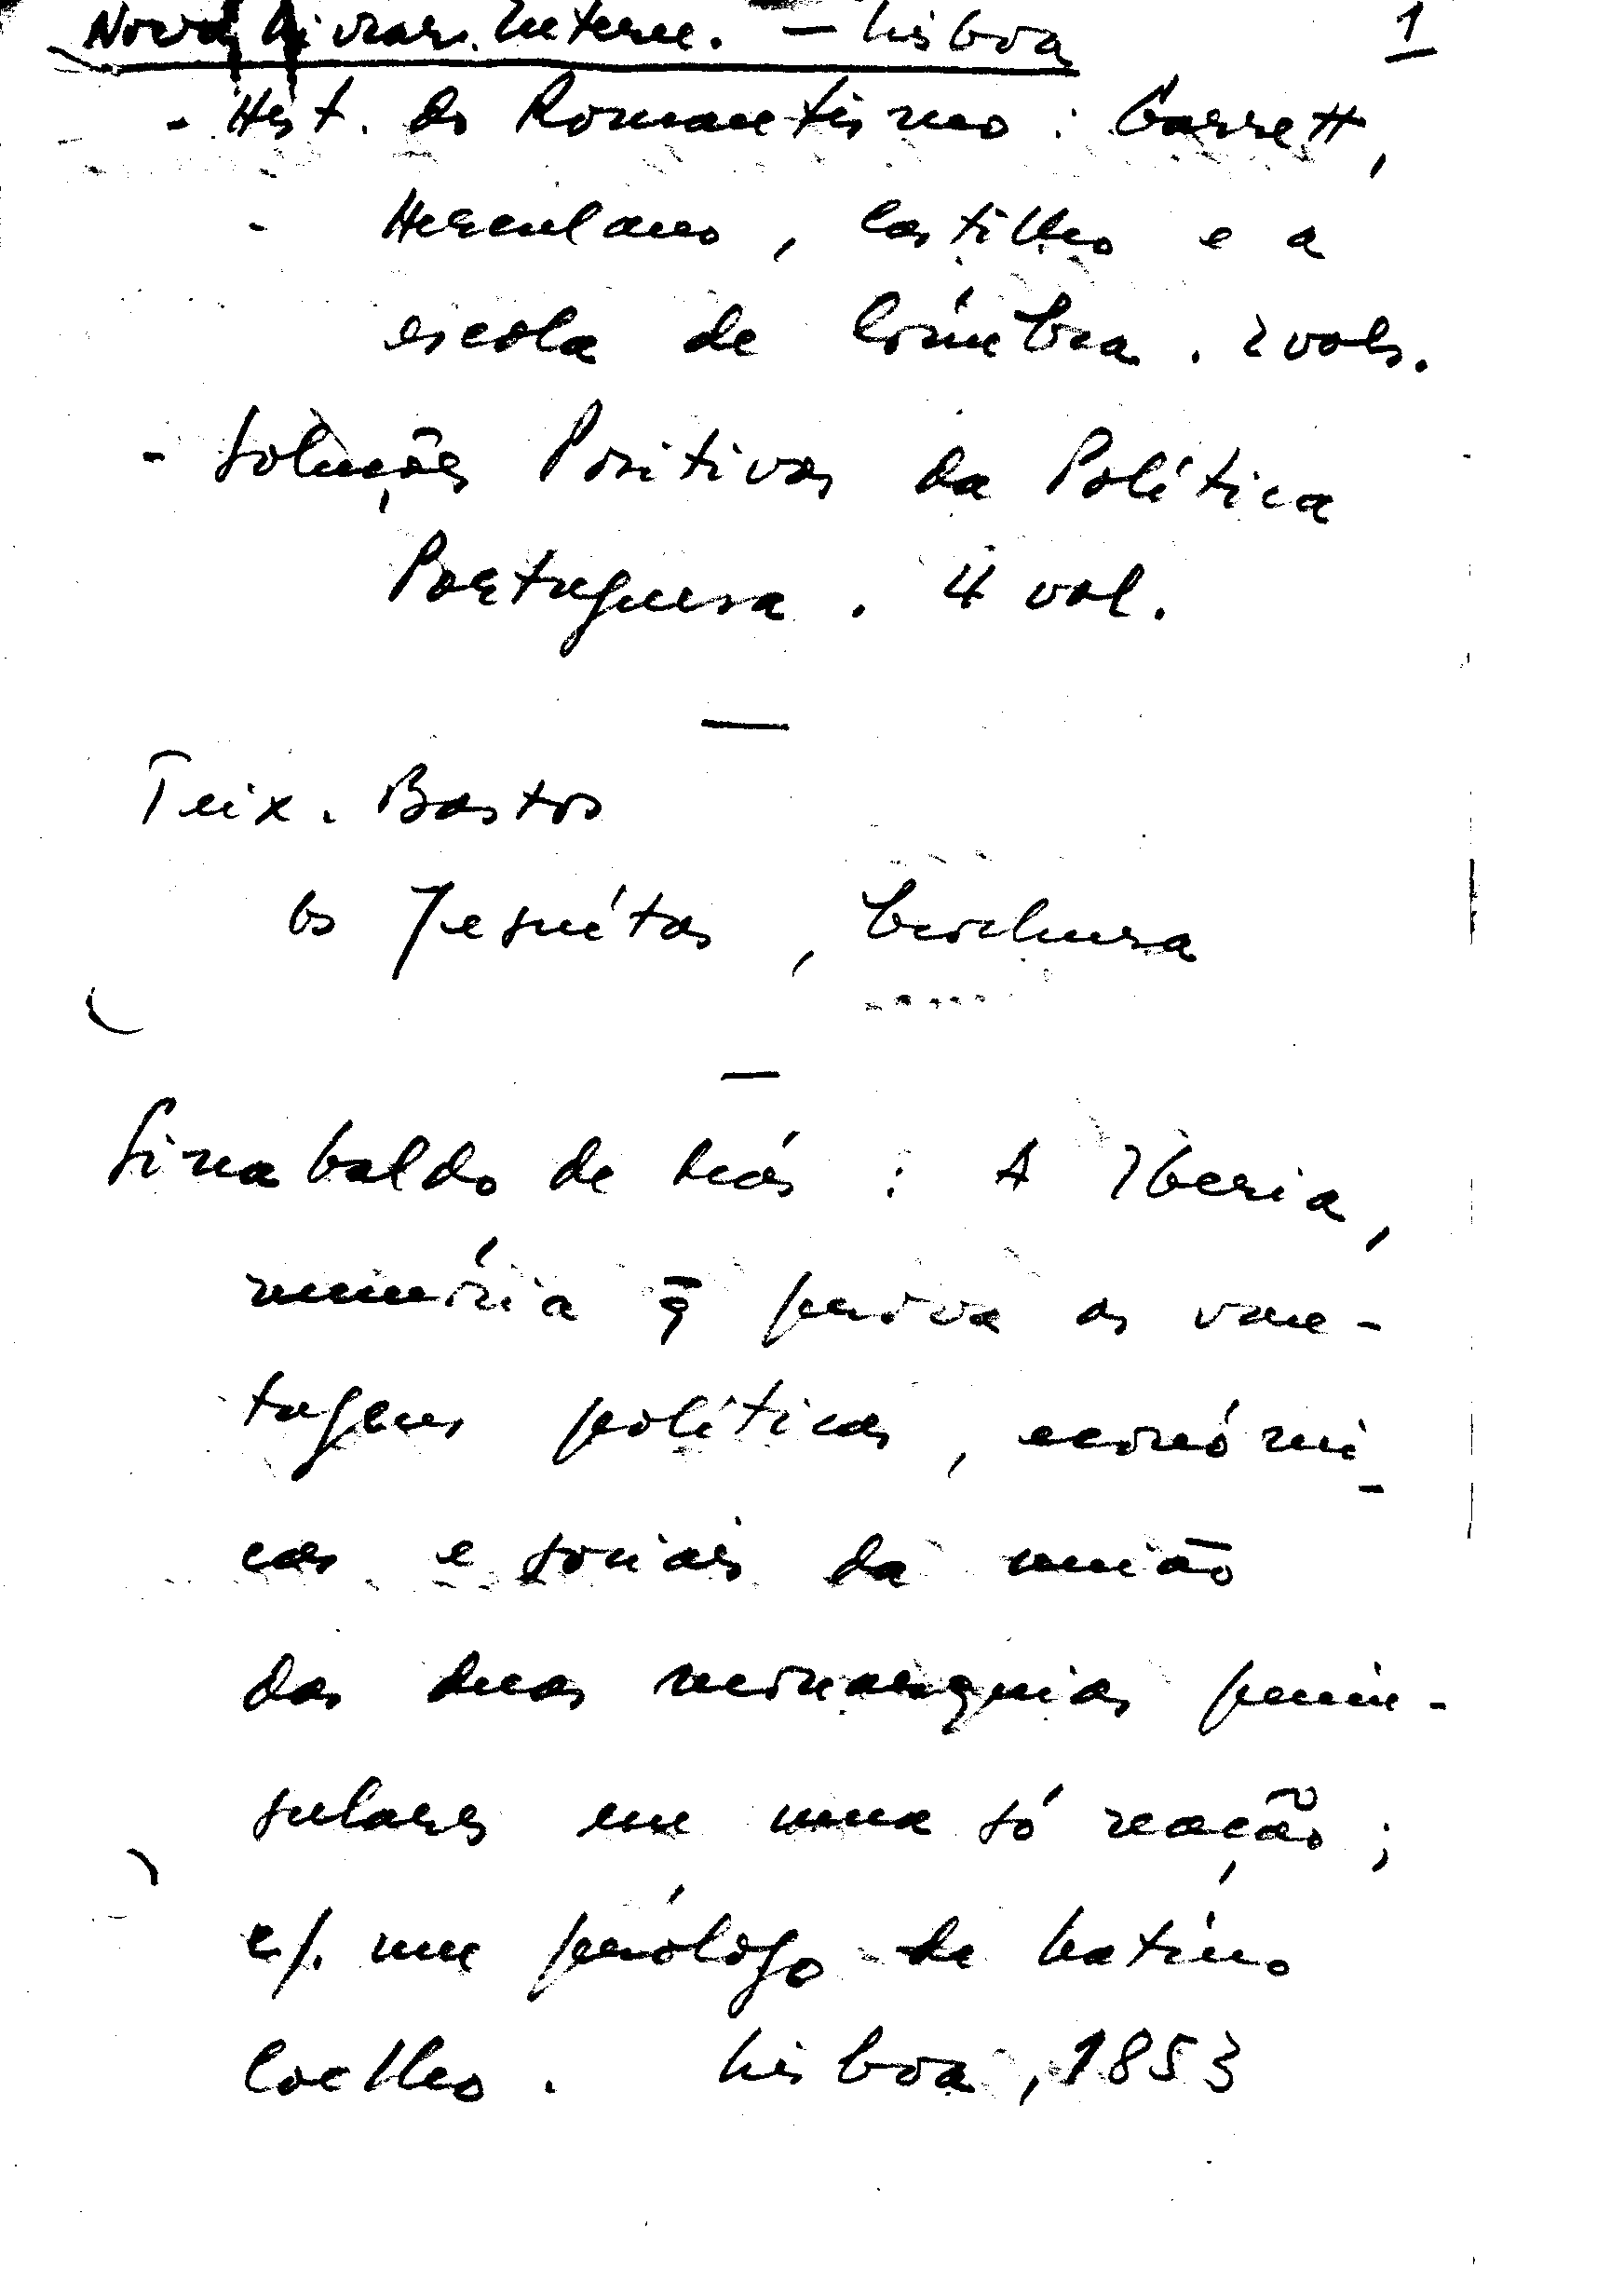 Nova Livrar. Intern. — Lisboa 1
- Hist. do Romantismo : Garrett,
- Herculano, Castilho e a
escola de Coimbra. 2 vols.
- Soluções Positivas da Política
Portuguesa. 4 vol.
—
Teix. Bastos
Os Jesuítas, brochura
—
Sinabaldo de Más : A Iberia,
memória q̄ prova as van-
tagens políticas, económi-
cas e sociais da união
das duas monarquias penin-
sulares em uma só nação;
c/. um prólogo de Latino
Coelho. Lisboa, 1853